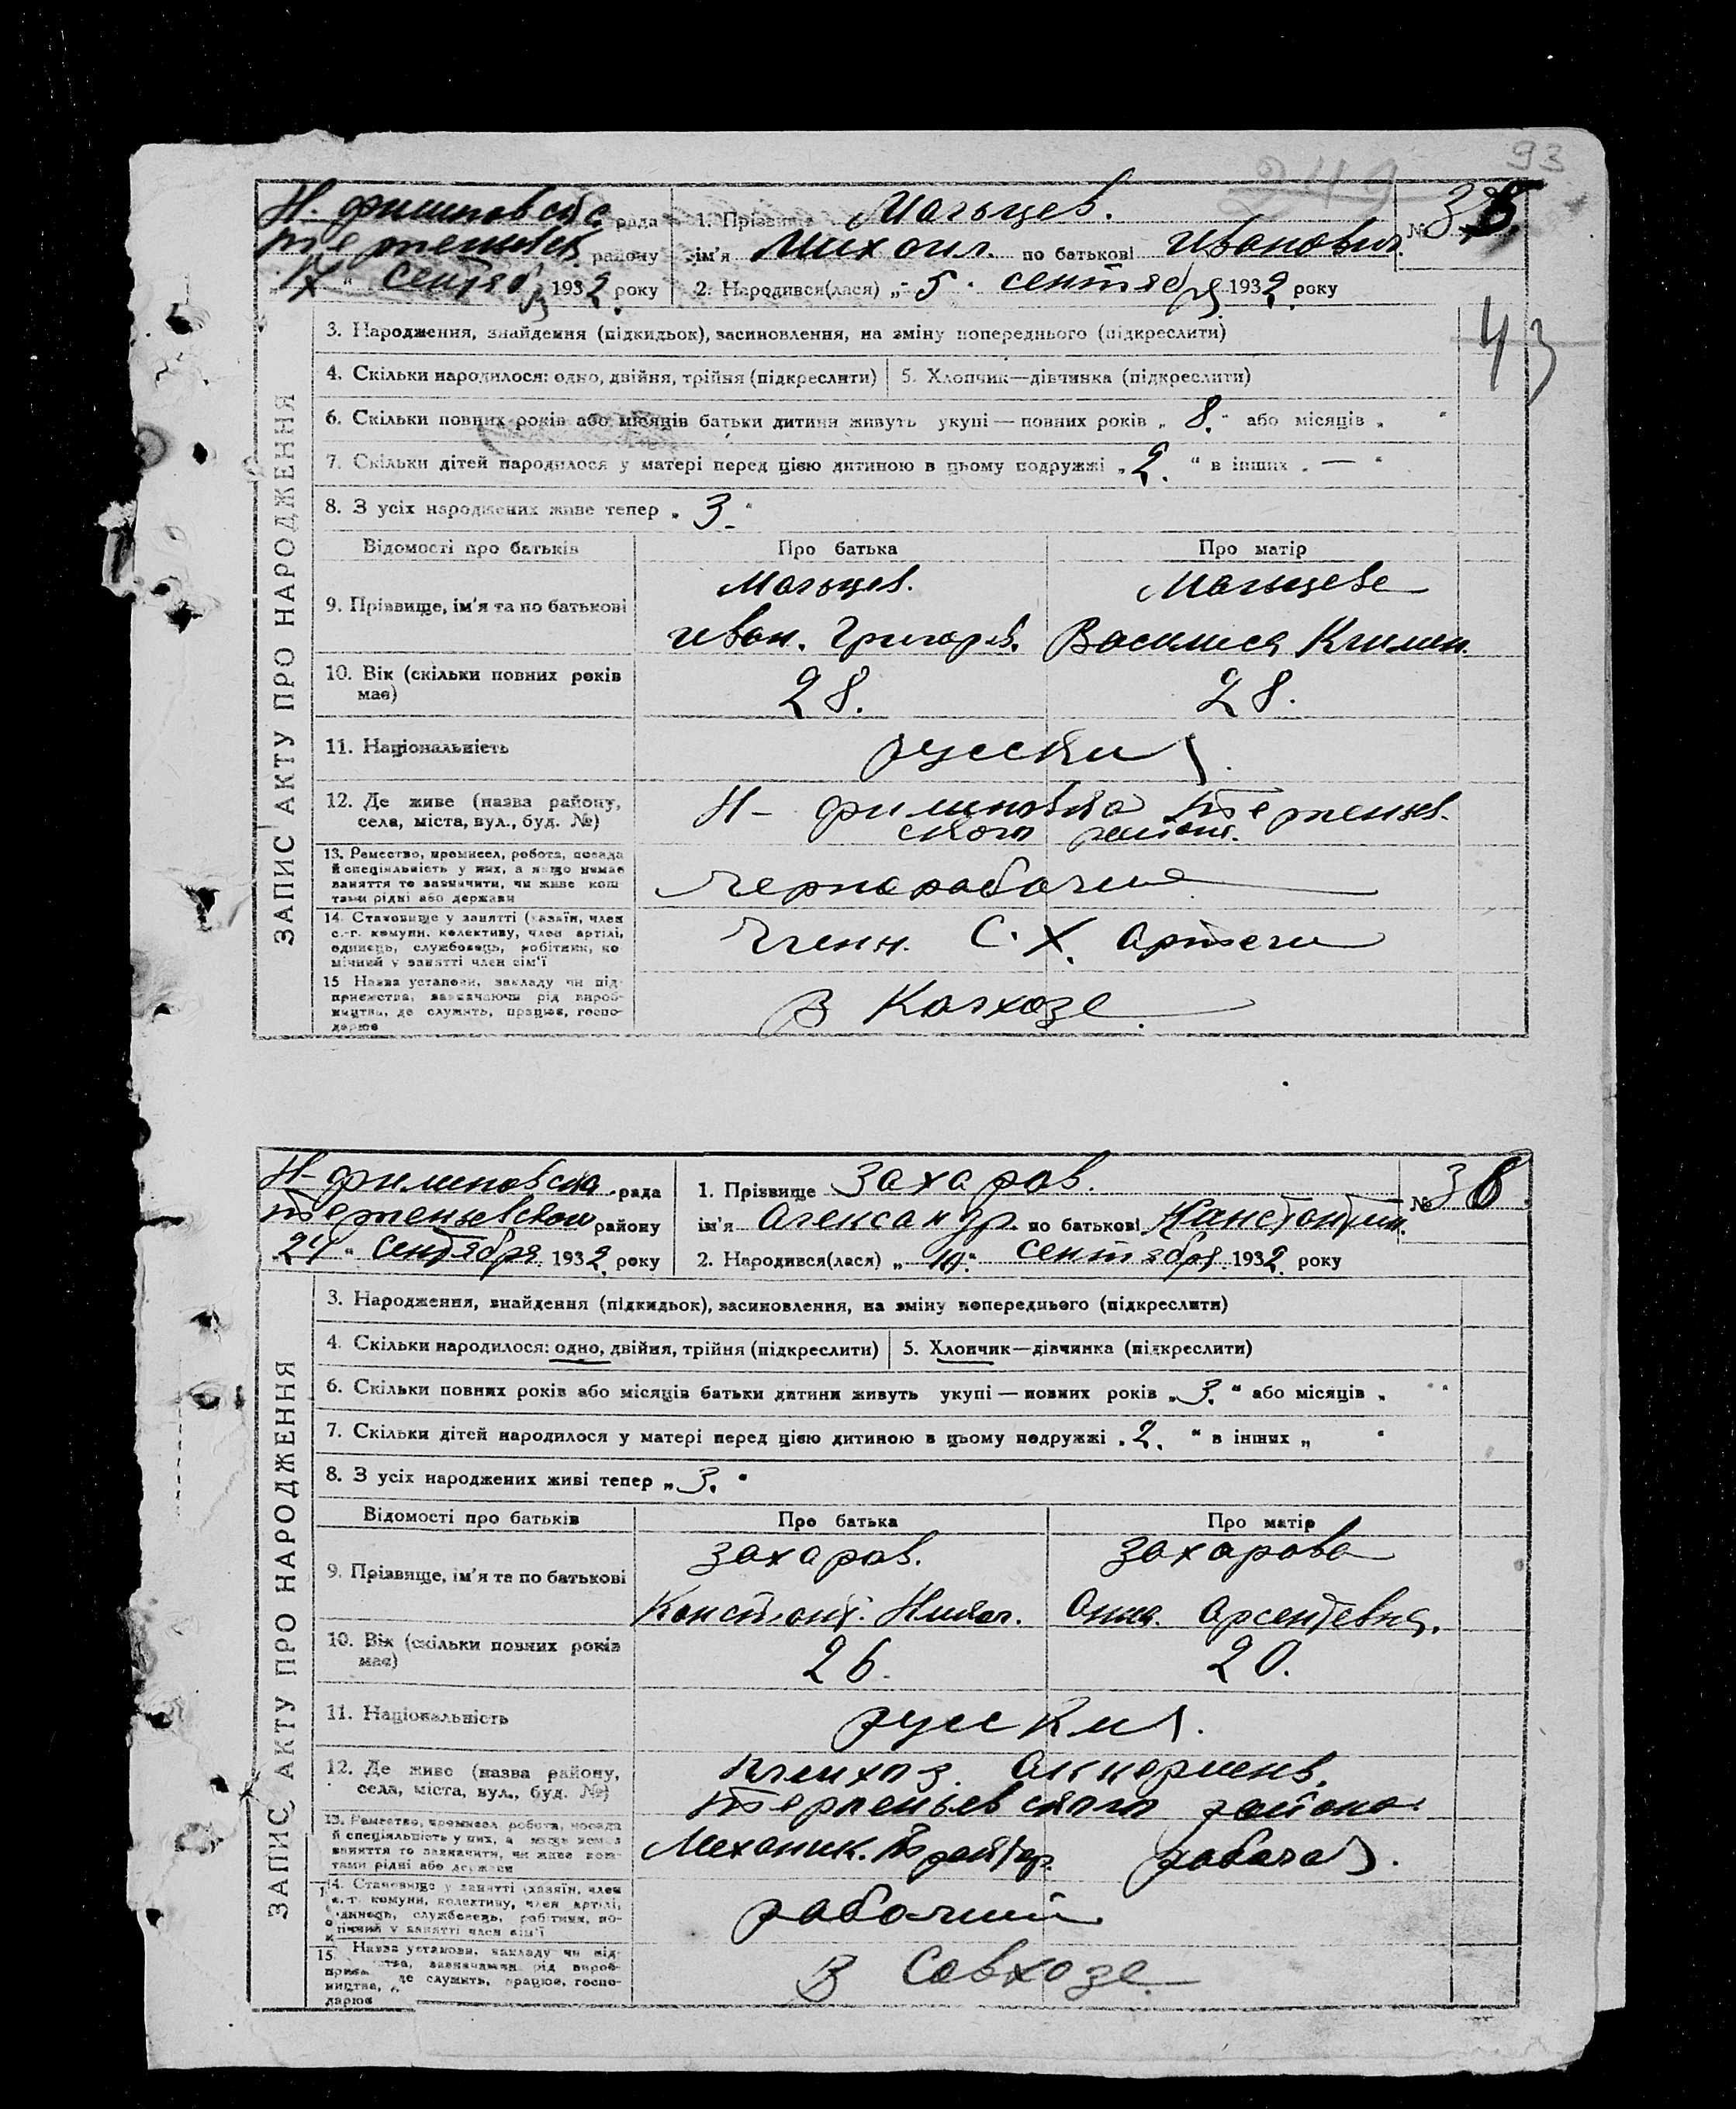 249
93
Н. филиповска рада
1. Прізвище Мальцев.
№ 36.
району
ім'я Михаил. по батькові Иванович.
17 " сентяб 1932 року
2. Народився(лася) „ 5. сентября 1932 року
43
ЗАПИС АКТУ ПРО НАРОДЖЕННЯ
3. Народження, знайдення (підкидьок), засиновлення, на зміну попереднього (підкреслити)
4. Скільки народилося: одно, двійня, трійня (підкреслити) 5. Хлопчик—дівчинка (підкреслити)
6. Скільки повних років або місяців батьки дитини живуть укупі — повних років „ 8. " або місяців „ "
7. Скільки дітей народилося у матері перед цією дитиною в цьому подружжі „ 2. " в інших „ — "
8. З усіх народжених живе тепер „ 3. "
Відомості про батьків Про батька Про матір
Мальцев. Мальцева
9. Прізвище, ім'я та по батькові
Иван. Григорьев. Василиса Климен.
10. Вік (скільки повних років
має)
28. 28.
11. Національність русския
12. Де живе (назва району,
села, міста, вул., буд. №)
Н- филиповка Терпеньев-
ского района.
13. Ремество, промисел, робота, посада
й спеціяльність у них, а якщо немає
заняття то зазначити, чи живе кош
тами рідні або держави
чернорабочие
14. Становище у занятті (хазяїн, член
с.-г. комуни, колективу, член артілі,
одинець, службовець, робітник, по
мічний у занятті член сім'ї
Член. С. Х. артели
15 Назва установи, закладу чи під-
приємства, зазначаючи рід вироб-
ництва, де служить, працює, госпо-
дарює
В Колхозе.
Н- филиповска рада
1. Прізвище Захаров.
№ 38.
Терпеньевском району
ім'я Александр. по батькові Канстонтин.
„ 24 " Сентября 1932 року
2. Народився(лася) „ 14. " сентября 1932 року
ЗАПИС АКТУ ПРО НАРОДЖЕННЯ
3. Народження, знайдення (підкидьок), засиновлення, на зміну попереднього (підкреслити)
4. Скільки народилося: одно, двійня, трійня (підкреслити) 5. Хлопчик—дівчинка (підкреслити)
6. Скільки повних років або місяців батьки дитини живуть укупі — повних років „ 3. " або місяців „ "
7. Скільки дітей народилося у матері перед цією дитиною в цьому подружжі „ 2. " в інших „ "
8. З усіх народжених живі тепер „ 3. "
Відомості про батьків Про батька Про матір
Захаров. Захарова
9. Прізвище, ім'я та по батькові
Констонт. Никол. Анна. Арсентевна.
10. Вік (скільки повних років
має)
26. 20.
11. Національність русския.
12. Де живе (назва району,
села, міста, вул., буд. №)
Племхоз. Аккермень.
Терпеньевского района.
13. Ремество, промисел робота, посада
й спеціяльність у них, а якщо немає
заняття то зазначити, чи живе кош-
тами рідні або держави
Механик. рабочая.
14. Становище у занятті (хазяїн, член
с.-г. комуни, колективу, член артілі,
одинець, службовець, робітник, по-
мічний у занятті член сім'ї
рабочий
15. Назва установи, закладу чи під-
приємства, зазначаючи рід вироб-
ництва, де служить, працює, госпо-
дарює
В Совхозе.